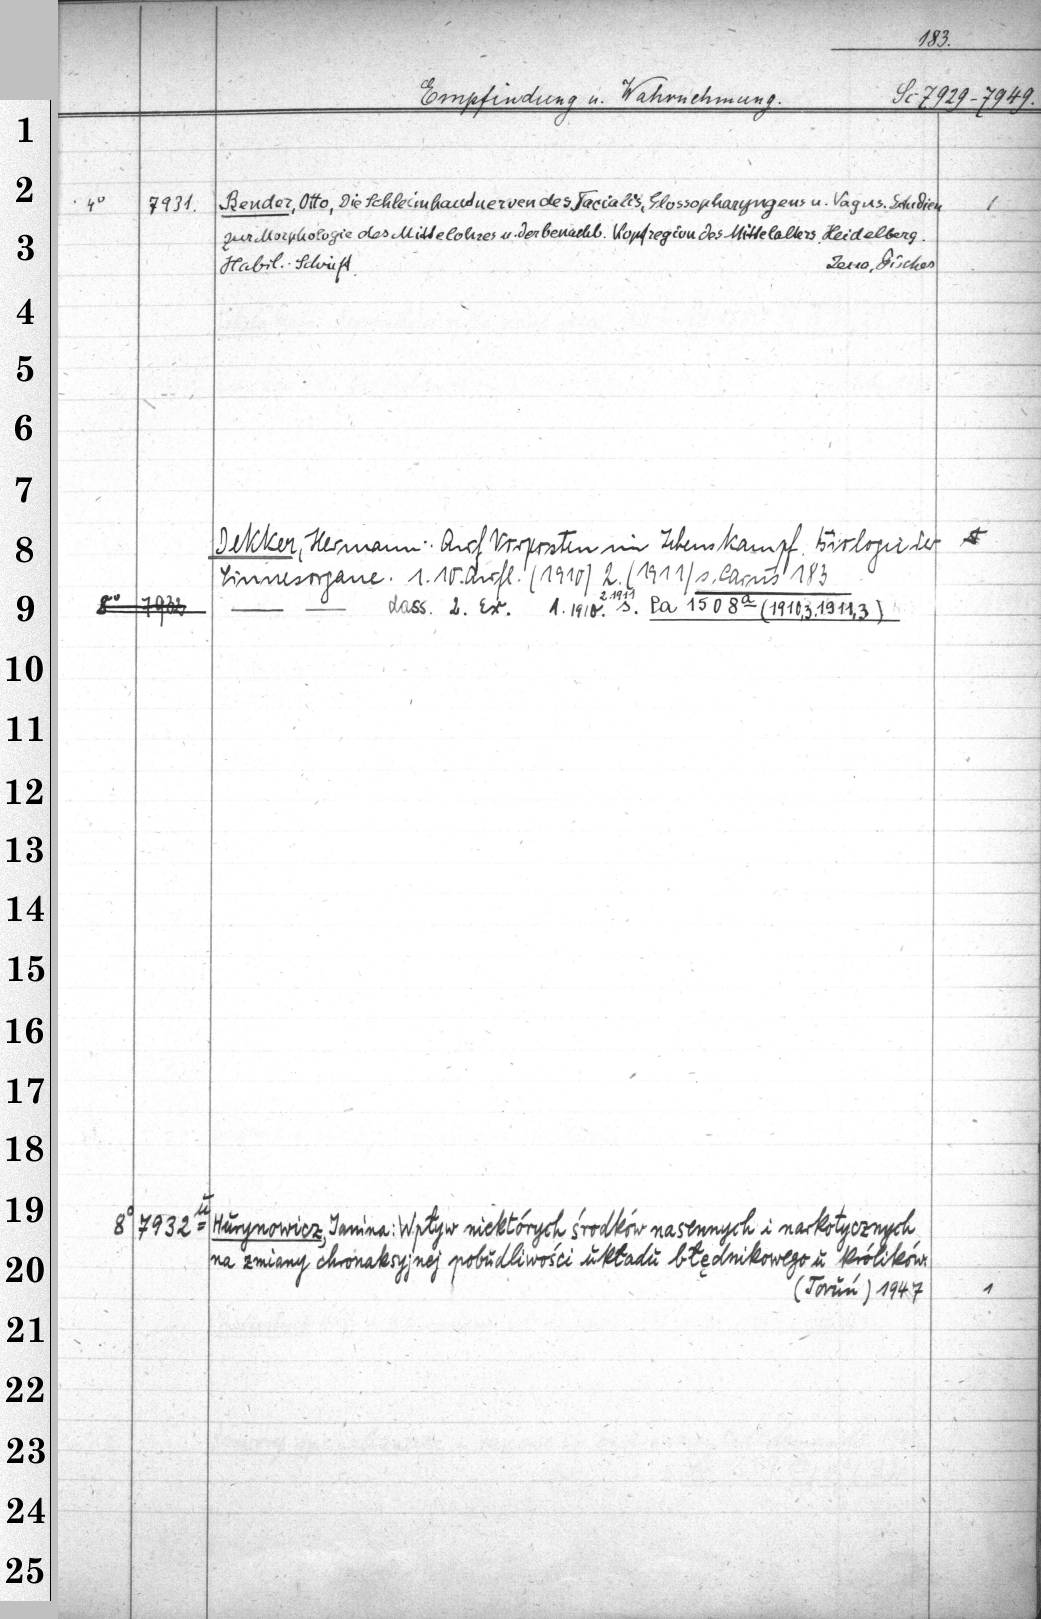 183.
Empfindung u. Wahrnehmung. Sc 7929-7949.
1
2 4° 7931. Bender, Otto, Die Schleimhautnerven des Facialis, Glossopharyngeus u. Vagus. Studien 1
zur Morphologie des Mittelohres u. der benachb. Kopfregion des Mittelalters. Heidelberg.
3 Habil.-Schrift. Jena, Fischer
4
5
6
7
8 Dekker, Hermann: Auf Vorposten im Lebenskampf. Biologie der
Sinnesorgane. 1. 10. Aufl. (1910) 2. (1911) s. Carus 183
9 8° 7932 dass. 2. Ex. 1. 1910. 2.1911 s. Pa 1508a (1910,3.1911,3)
10
11
12
13
14
15
16
17
18
19 8° 7932 u Hurynowicz, Janina: Wpływ niektórych środków nasennych i narkotycznych
20 na zmiany chronaksyjnej pobudliwości układu błędnikowego u królików.
(Toruń) 1947 1
21
22
23
24
25